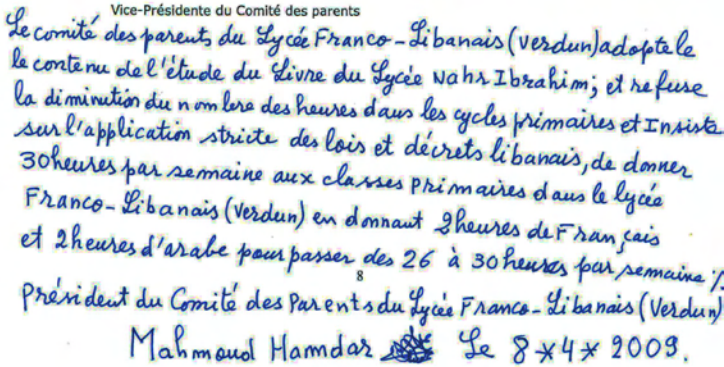 Vice-Présidente du Comité des parents
Le comité des parents du Lycée Franco-Libanais (verdun) adopte le
le contenu de l'étude du Livre du Lycée Nahr Ibrahim; et refuse
la diminution du nombre des heures dans les cycles primaires et Insiste
sur l'application stricte des lois et décrets libanais, de donner
30 heures par semaine aux classes primaires dans le lycée
Franco-Libanais (Verdun) en donnant 2 heures de Français
et 2 heures d'arabe pour passer des 26 à 30 heures par semaine %.
8
Président du Comité des Parents du Lycée Franco-Libanais (Verdun)
Mahmoud Hamdar Le 8*4*2009.